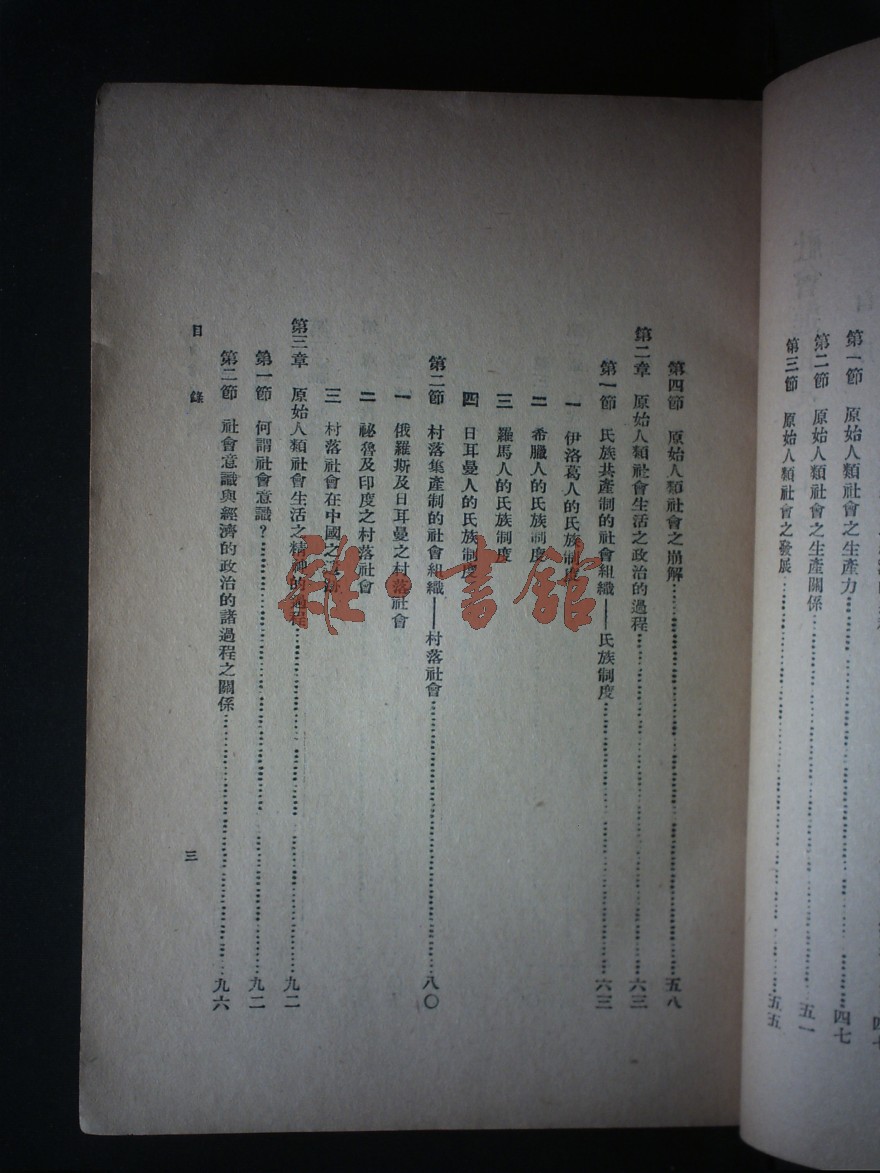 第一節 原始人類社會之生產力……四七
第二節 原始人類社會之生產關係……五一
第三節 原始人類社會之發展……五五
第四節 原始人類社會之崩解……五八
第二章 原始人類社會生活之政治的過程……六三
第一節 民族共產制的社會組織——民族制度……六三
一 伊洛葛人的民族制度
二 希臘人的氏族制度
三 羅馬人的氏族制度
四 日耳曼人的氏族制度
第二節 村落集產制的社會組織——村落社會……八〇
一 俄羅斯及日耳曼之村落社會
二 祕魯及印度之村落社會
三 村落社會在中國之
第三章 原始人類社會生活之精神的過程……九二
第一節 何謂社會意識?……九二
第二節 社會意識與經濟的政治的諸過程之關係……九六
目 錄
三
雜·書館